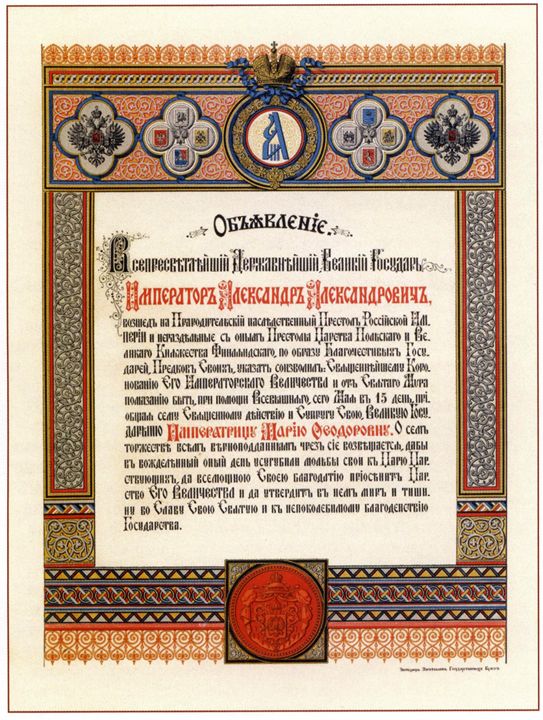 Объявленіе.
Всепресвѣтлѣйшій Державнѣйшій Великій Государь
Императоръ Александръ Александровичъ,
возшедъ на Прародительскій наслѣдственный Престолъ Россійской Им-
періи и нераздѣльные съ онымъ Престолы Царства Польскаго и Ве-
ликаго Княжества Финляндскаго, по образу Благочестивыхъ Госу-
дарей, Предковъ Своихъ, указать соизволилъ: Священнѣйшему Коро-
нованію Его Императорскаго Величества и отъ Святаго Мѵра
помазанію быть, при помощи Всевышняго, сего Мая въ 15 день, прі-
общая сему Священному дѣйствію и Супругу Свою, Великую Госу-
дарыню Императрицу Марію Ѳеодоровну. О семъ
торжествѣ всѣмъ вѣрноподданнымъ чрезъ сіе возвѣщается, дабы
въ вожделѣнный оный день усугубили мольбы свои къ Царю Цар-
ствующихъ, да всемощною Своею благодатію пріосѣнитъ Цар-
ство Его Величества и да утвердитъ въ немъ миръ и тиши-
ну во Славу Свою Святую и къ непоколебимому благоденствію
Государства.
Экспедиція Заготовленія Государственныхъ Бумагъ